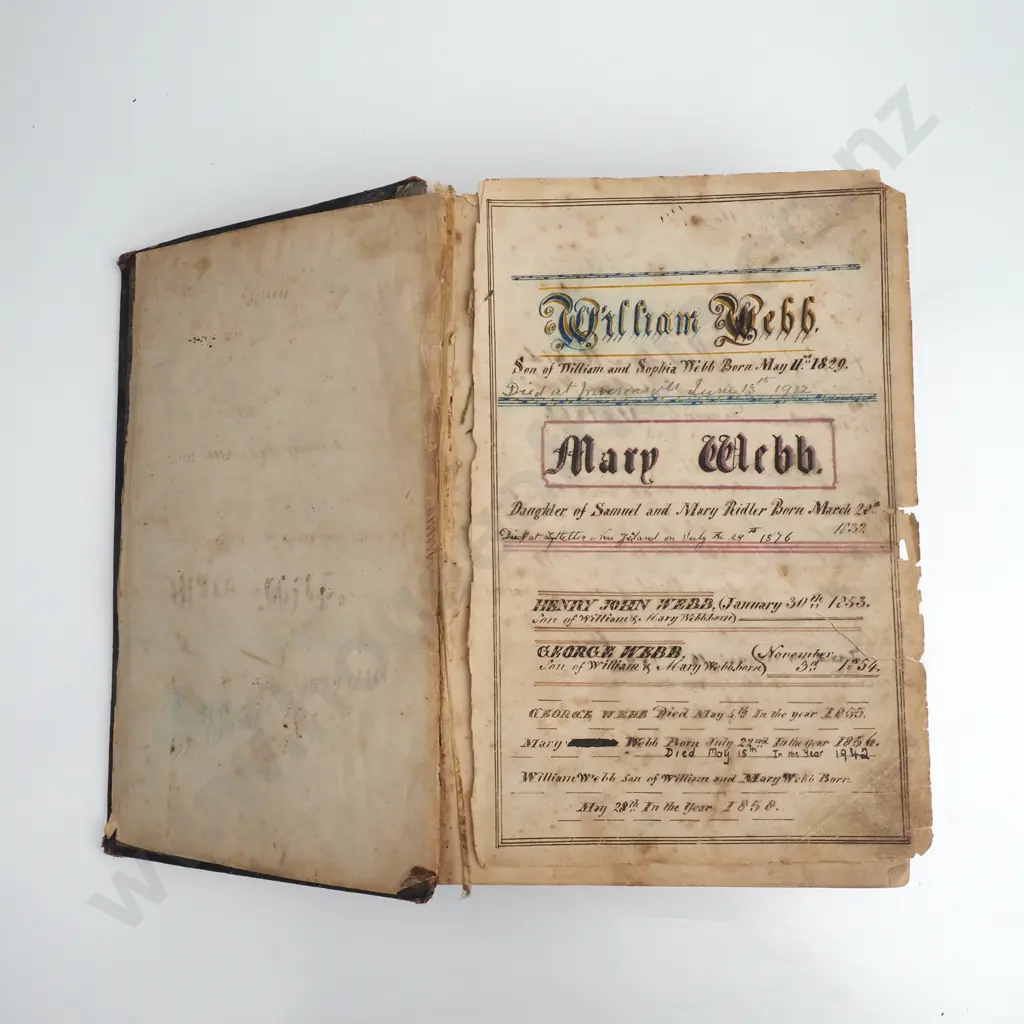 William Webb.
Son of William and Sophia Webb Born May 11nd 1829.
Died at June 13th 1912
Mary Webb.
Daughter of Samuel and Mary Ridler Born March 28th
1832
Died at Lyttelton New Zeland on July the 28th 1876
HENRY JOHN WEBB, (January 30th 1853.
Son of William & Mary Webb born)
GEORGE WEBB. (November
Son of William & Mary Webb born) 3rd 1854.
GEORGE WEBB Died May 4th In the year 1855.
Mary Webb Born July 22nd In the year 1856.
Died May 15th In the Year 1942
William Webb son of William and Mary Webb Born
May 28th In the Year 1858.